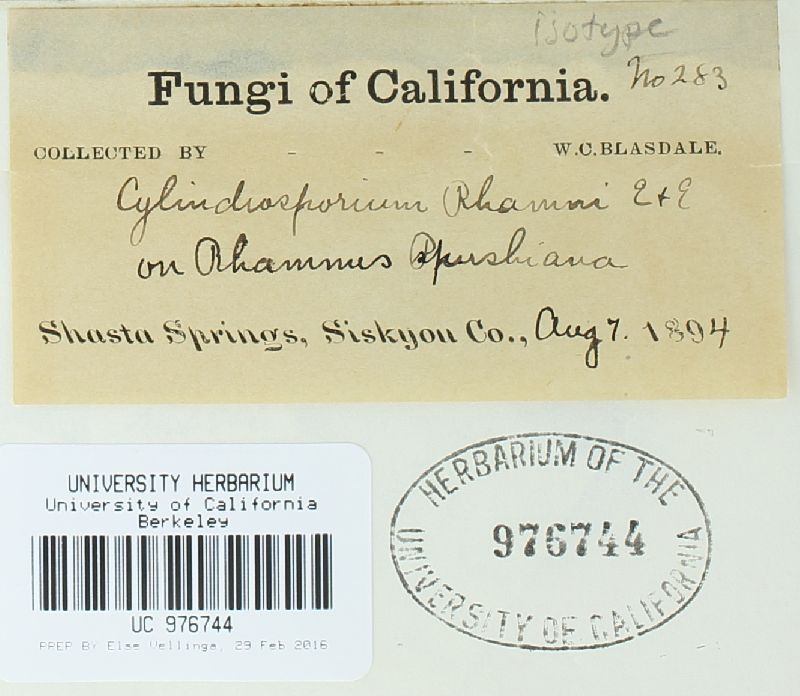 Isotype
Fungi of California. No 283
COLLECTED BY - - - W.C.BLASDALE.
Cylindrosporium Rhamni E & E
on Rhamnus Purshiana
Shasta Springs, Siskyou Co., Aug 7. 1894
UNIVERSITY HERBARIUM
University of California
Berkeley
UC 976744
PREP BY Else Vellinga, 29 Feb 2016
HERBARIUM OF THE
976744
UNIVERSITY OF CALIFORNIA